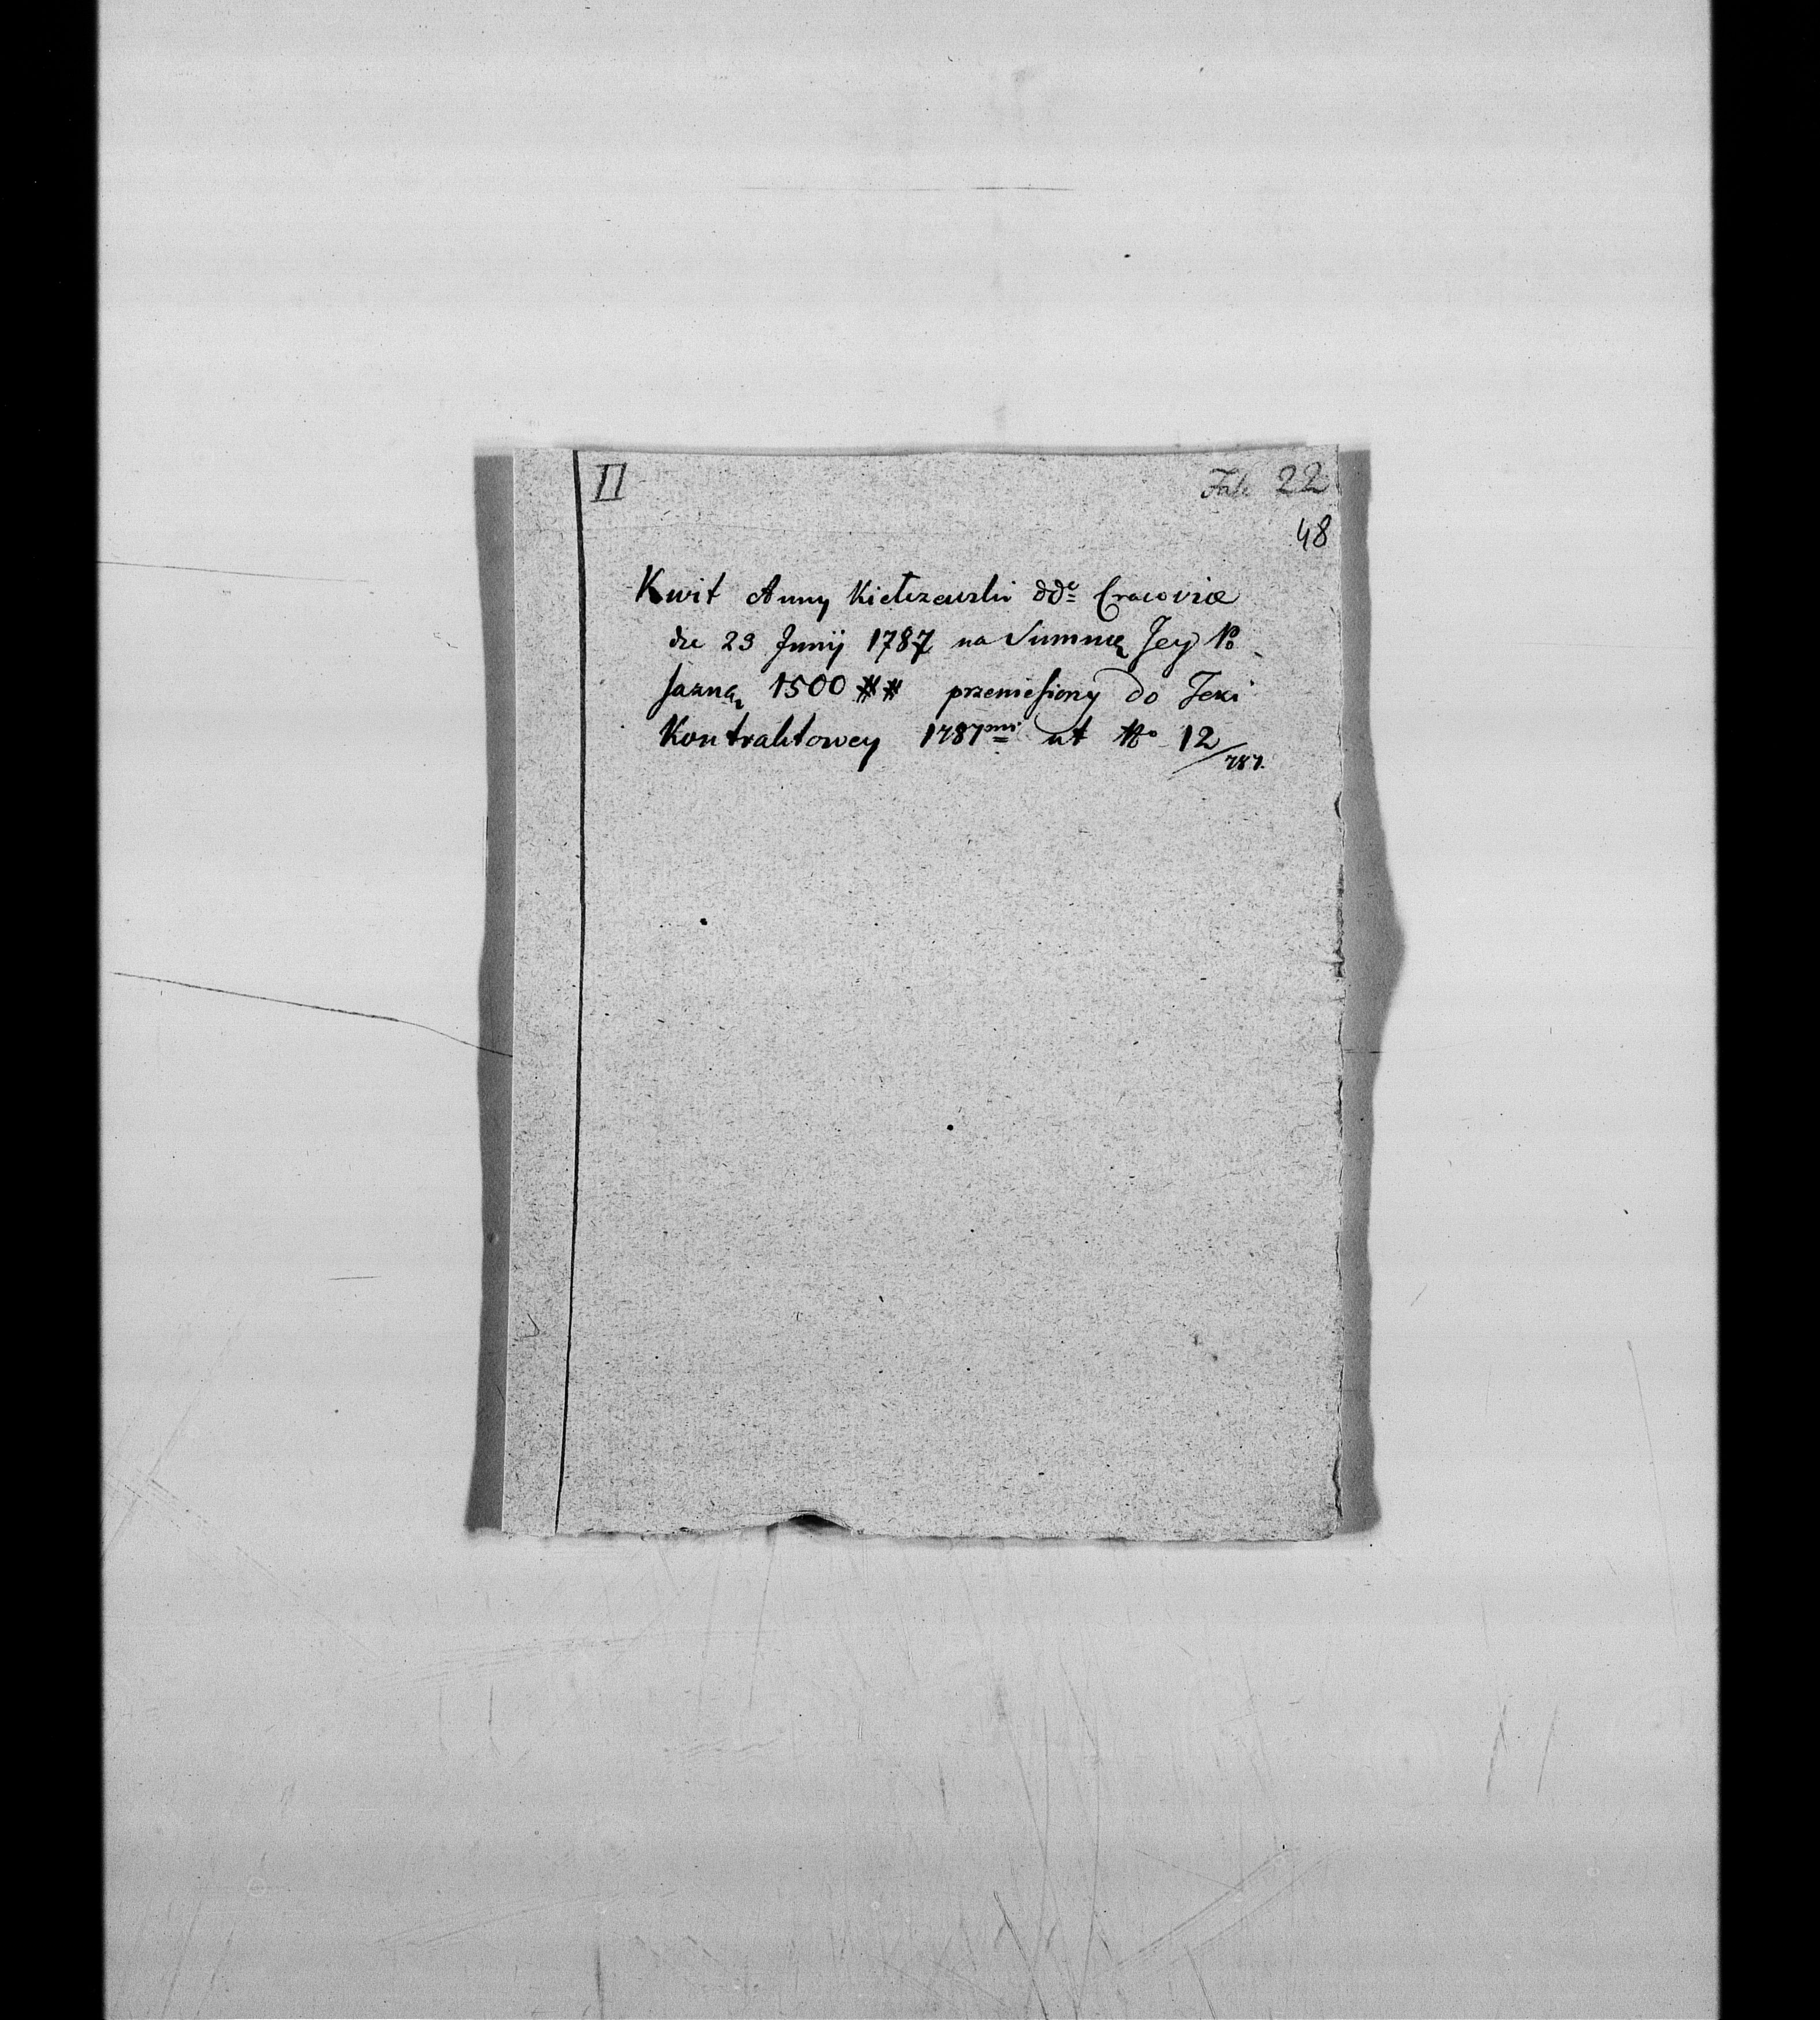 II
22
48
Kwit Anny Kiełczewski dd͟e Cracoviæ
die 23 Junij 1787 na Summę Jey Po-
sazną 1500 ## przeniesiony do Teki
Kontraktowey 1787mi ut No 12/787.